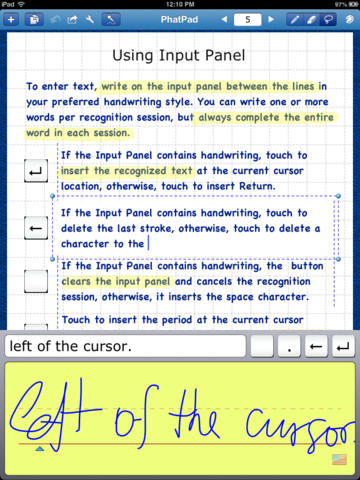 iPad 12:10 PM 97%
PhatPad 5
Using Input Panel
To enter text, write on the input panel between the lines in
your preferred handwriting style. You can write one or more
words per recognition session, but always complete the entire
word in each session.
If the Input Panel contains handwriting, touch to
insert the recognized text at the current cursor
location, otherwise, touch to insert Return.
If the Input Panel contains handwriting, touch to
delete the last stroke, otherwise, touch to delete a
character to the
If the Input Panel contains handwriting, the button
clears the input panel and cancels the recognition
session, otherwise, it inserts the space character.
Touch to insert the period at the current cursor
left of the cursor. . ← ↵
left of the cursor.